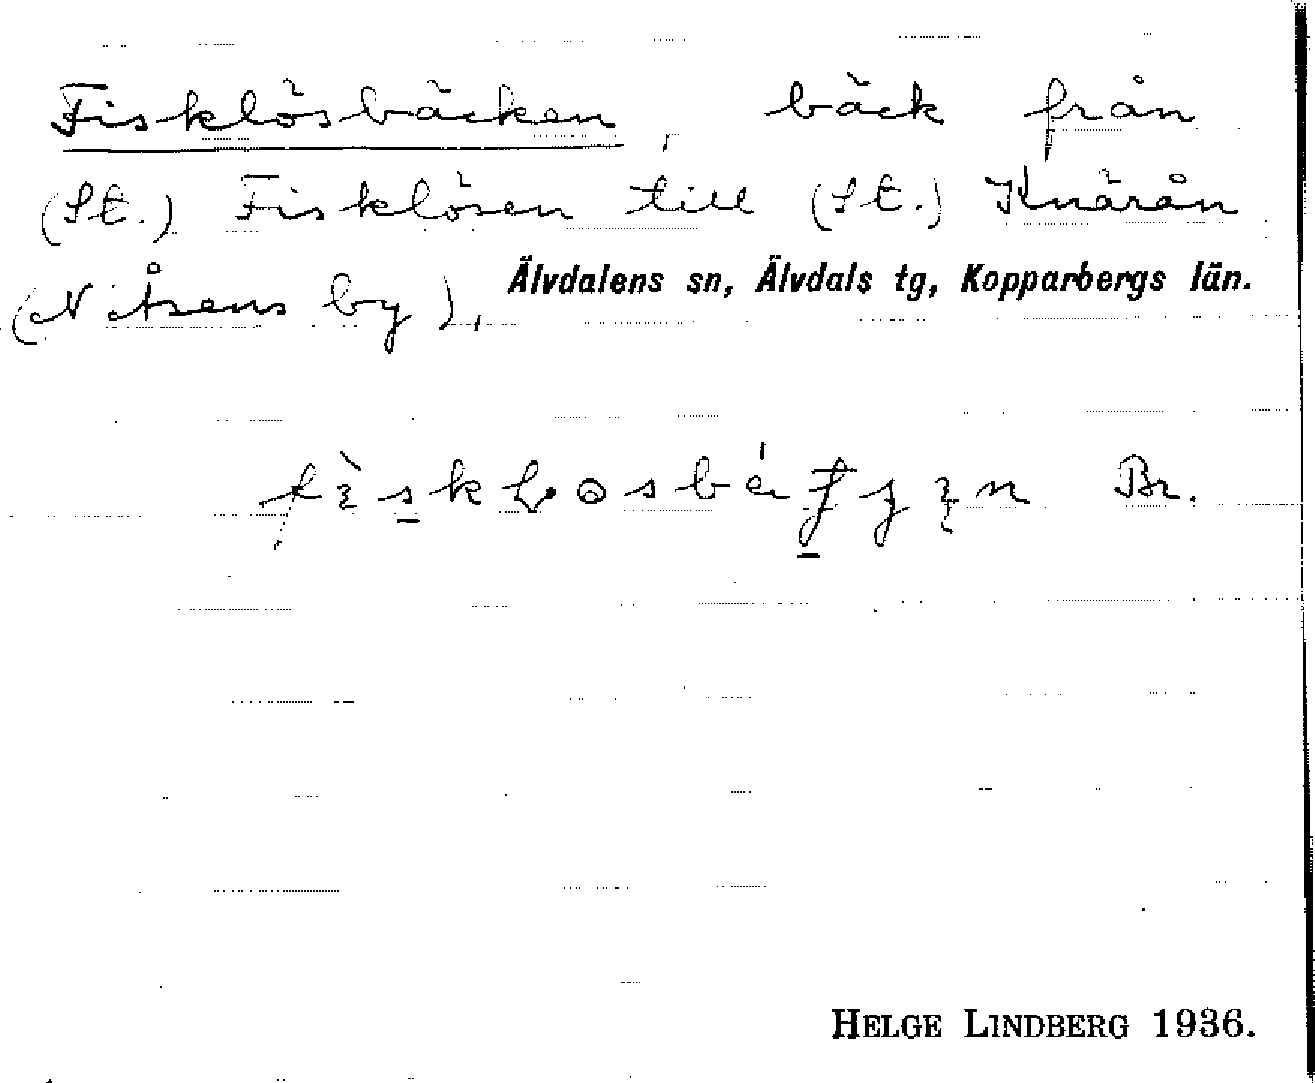 Fisklösbäcken, bäck från
(St.) Fisklösen till (St.) Knärån
(N Åsens by), Älvdalens sn, Älvdals tg, Kopparbergs län.
Br.
HELGE LINDBERG 1936.